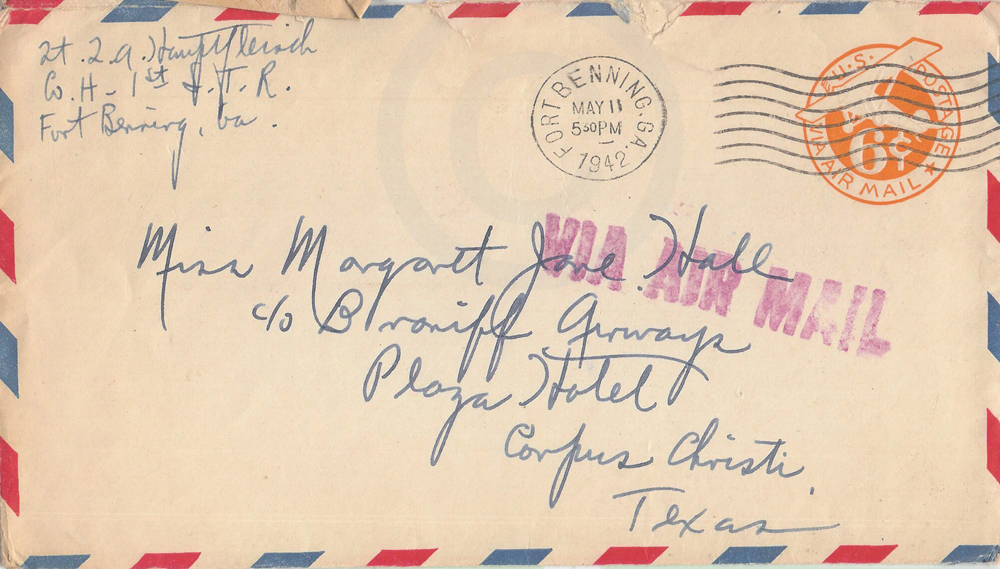 Lt. L.A. Hauptfleisch
Co. H - 1st S.T.R.
Fort Benning, Ga.
FORT BENNING, GA.
MAY 11
5 30 PM
1942
U.S. POSTAGE
6¢
VIA AIR MAIL
VIA AIR MAIL
Miss Margarett Jane Hall
c/o Braniff Airways
Plaza Hotel
Corpus Christi,
Texas